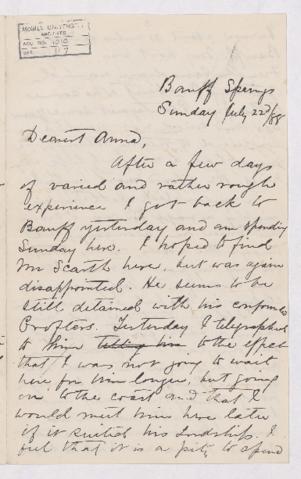 McGILL UNIVERSITY
ARCHIVES
ACC. NO. 1010
REF. 7
Banff Springs
Sunday July 22d/88
Dearest Anna,
After a few days
of varied and rather rough
experience I got back to
Banff yesterday and am spending
Sunday here. I hoped to find
Mr Scarth here, but was again
disappointed. He seems to be
still detained with his
Crofters. Yesterday I telegraphed
to him telling him to the effect
that I was not going to wait
here for him longer, but going
on to the coast and that I
would meet him here later
if it suited his Lordship. I
feel that it is a pity to spend